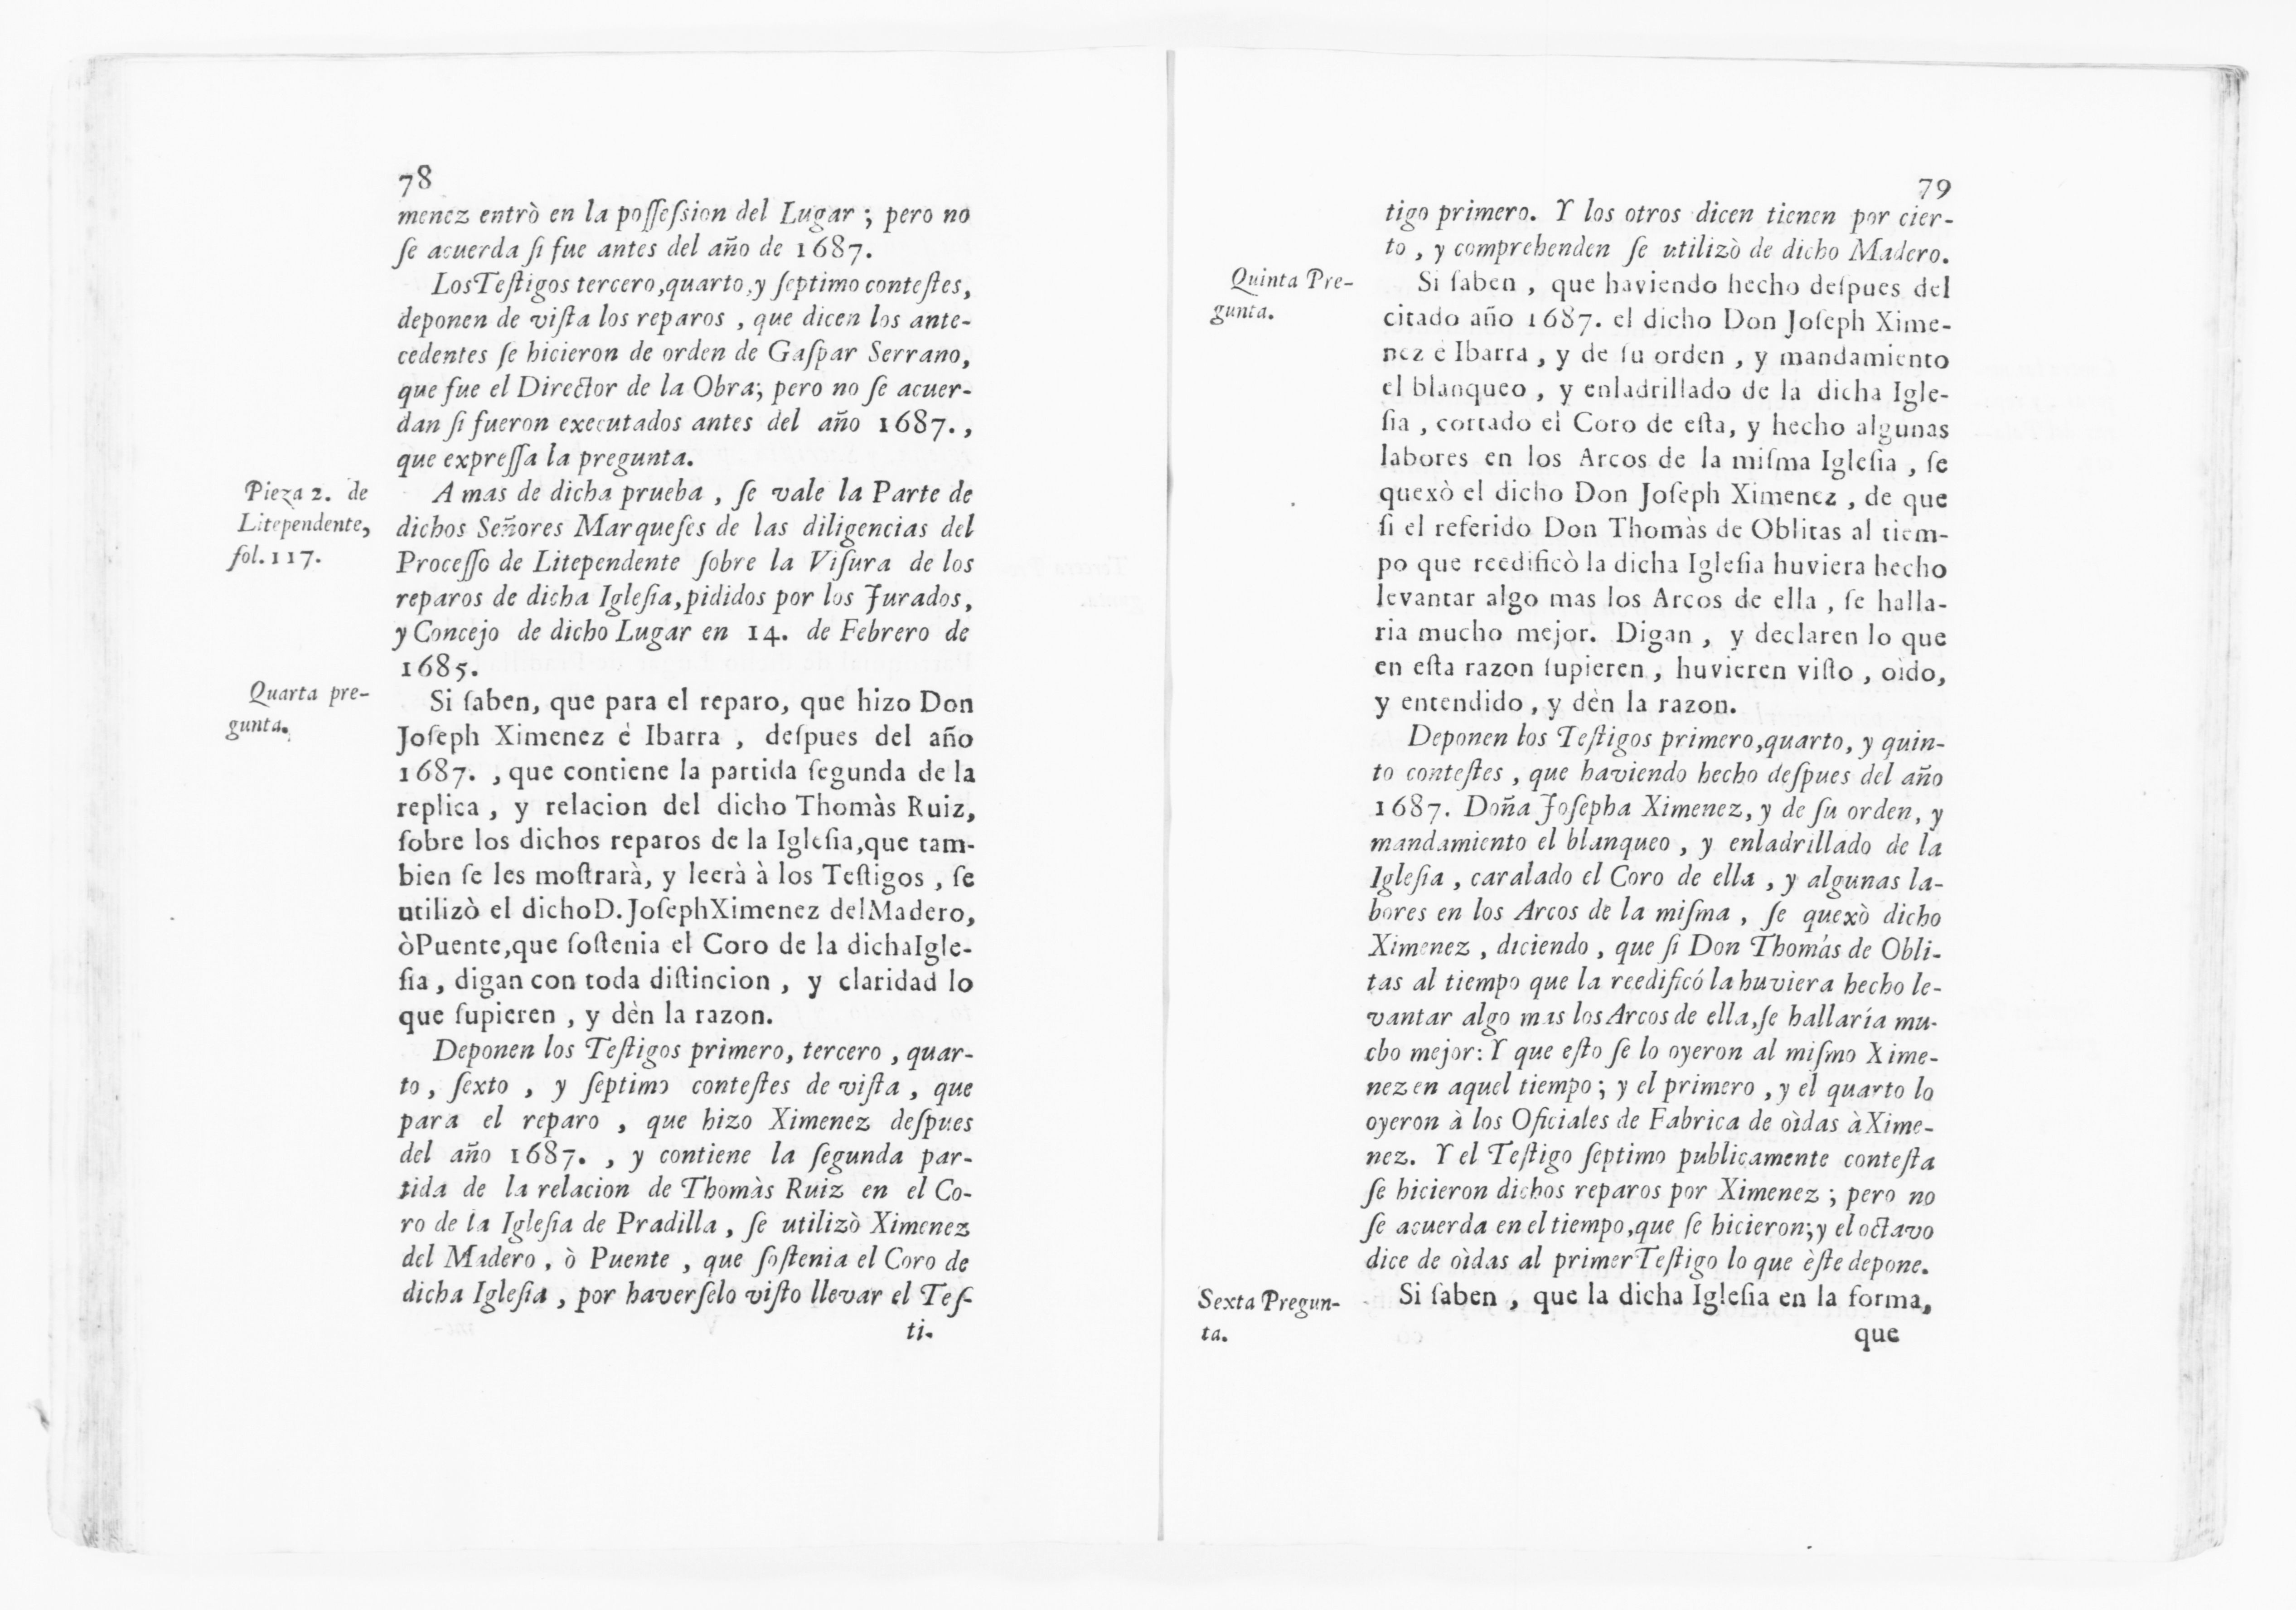 78
menez entrò en la poſſeſsion del Lugar ; pero no
ſe acuerda ſi fue antes del año de 1687.
Los Teſtigos tercero, quarto, y ſeptimo conteſtes,
deponen de viſta los reparos , que dicen los ante-
cedentes ſe hicieron de orden de Gaſpar Serrano,
que fue el Director de la Obra; pero no ſe acuer-
dan ſi fueron executados antes del año 1687. ,
que expreſſa la pregunta.
Pieza 2. de
Litependente,
fol. 117.
A mas de dicha prueba , ſe vale la Parte de
dichos Señores Marqueſes de las diligencias del
Proceſſo de Litependente ſobre la Viſura de los
reparos de dicha Igleſia, pididos por los Jurados,
y Concejo de dicho Lugar en 14. de Febrero de
1685.
Quarta pre-
gunta.
Si ſaben, que para el reparo, que hizo Don
Joſeph Ximenez è Ibarra , deſpues del año
1687. , que contiene la partida ſegunda de la
replica , y relacion del dicho Thomàs Ruiz,
ſobre los dichos reparos de la Igleſia, que tam-
bien ſe les moſtrarà, y leerà à los Teſtigos , ſe
utilizò el dicho D. Joſeph Ximenez del Madero,
ò Puente, que ſoſtenia el Coro de la dicha Igle-
ſia , digan con toda diſtincion , y claridad lo
que ſupieren , y dèn la razon.
Deponen los Teſtigos primero, tercero , quar-
to , ſexto , y ſeptimo conteſtes de viſta , que
para el reparo , que hizo Ximenez deſpues
del año 1687. , y contiene la ſegunda par-
tida de la relacion de Thomàs Ruiz en el Co-
ro de la Igleſia de Pradilla , ſe utilizò Ximenez
del Madero , ò Puente , que ſoſtenia el Coro de
dicha Igleſia , por haverſelo viſto llevar el Teſ-
ti-
79
tigo primero. Y los otros dicen tienen por cier-
to , y comprehenden ſe utilizò de dicho Madero.
Quinta Pre-
gunta.
Si ſaben , que haviendo hecho deſpues del
citado año 1687. el dicho Don Joſeph Xime-
nez è Ibarra , y de ſu orden , y mandamiento
el blanqueo , y enladrillado de la dicha Igle-
ſia , cortado el Coro de eſta, y hecho algunas
labores en los Arcos de la miſma Igleſia , ſe
quexò el dicho Don Joſeph Ximenez , de que
ſi el referido Don Thomàs de Oblitas al tiem-
po que reedificò la dicha Igleſia huviera hecho
levantar algo mas los Arcos de ella , ſe halla-
ria mucho mejor. Digan , y declaren lo que
en eſta razon ſupieren , huvieren viſto , oìdo,
y entendido , y dèn la razon.
Deponen los Teſtigos primero, quarto, y quin-
to conteſtes , que haviendo hecho deſpues del año
1687. Doña Joſepha Ximenez, y de ſu orden, y
mandamiento el blanqueo , y enladrillado de la
Igleſia , caralado el Coro de ella , y algunas la-
bores en los Arcos de la miſma , ſe quexò dicho
Ximenez , diciendo , que ſi Don Thomás de Obli-
tas al tiempo que la reedificó la huviera hecho le-
vantar algo mas los Arcos de ella, ſe hallaría mu-
cho mejor: Y que eſto ſe lo oyeron al miſmo Xime-
nez en aquel tiempo ; y el primero , y el quarto lo
oyeron à los Oficiales de Fabrica de oìdas à Xime-
nez. Y el Teſtigo ſeptimo publicamente conteſta
ſe hicieron dichos reparos por Ximenez ; pero no
ſe acuerda en el tiempo, que ſe hicieron; y el octavo
dice de oìdas al primer Teſtigo lo que èſte depone.
Sexta Pregun-
ta.
Si ſaben , que la dicha Igleſia en la forma,
que